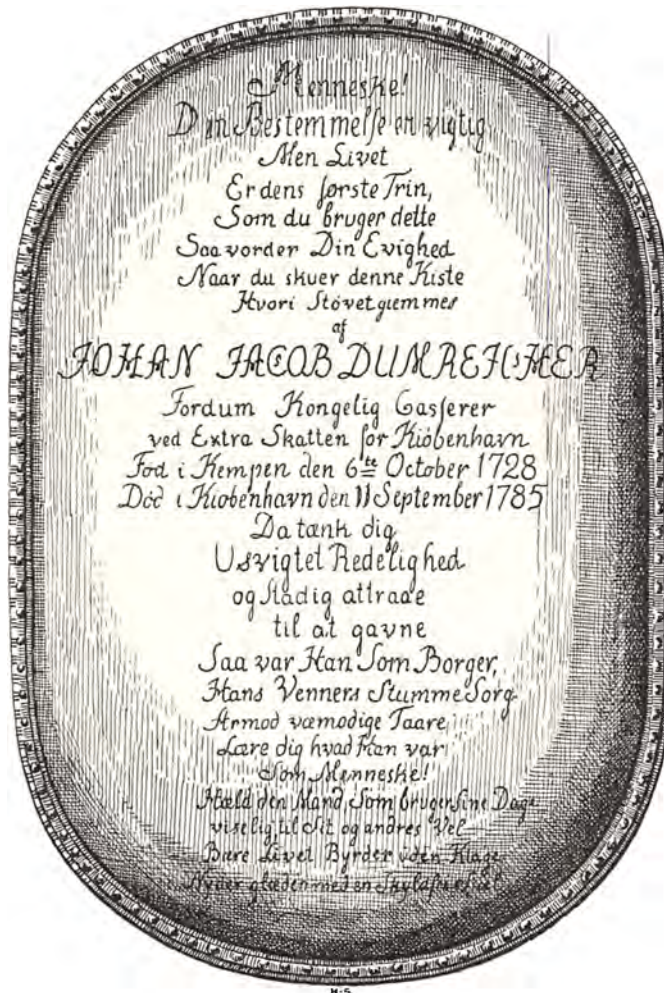 Menneske!
Din Bestemmelse er vigtig
Men Livet
Er dens første Trin,
Som du bruger dette
Saa vorder Din Evighed
Naar du skuer denne Kiste
Hvori Støvet giemmes
af
JOHAN JACOB DUMREICHER
Fordum Kongelig Casserer
ved Extra Skatten for Kiöbenhavn
Föd i Kempen den 6te October 1728
Död i Kiöbenhavn den 11 September 1785
Da tænk dig
Usvigtet Redelighed
og stadig attraae
til at gavne
Saa var Han Som Borger,
Hans Venners Stumme Sorg
Armod væmodige Taare
Lære dig hvad Han var
Som Menneske!
Hæld den Mand, Som bruger sine Dage
viselig til Sit og andres Vel
Bære Livet Byrder uden Klage
Nyder glæden med en Skyldfri Siel
H·S